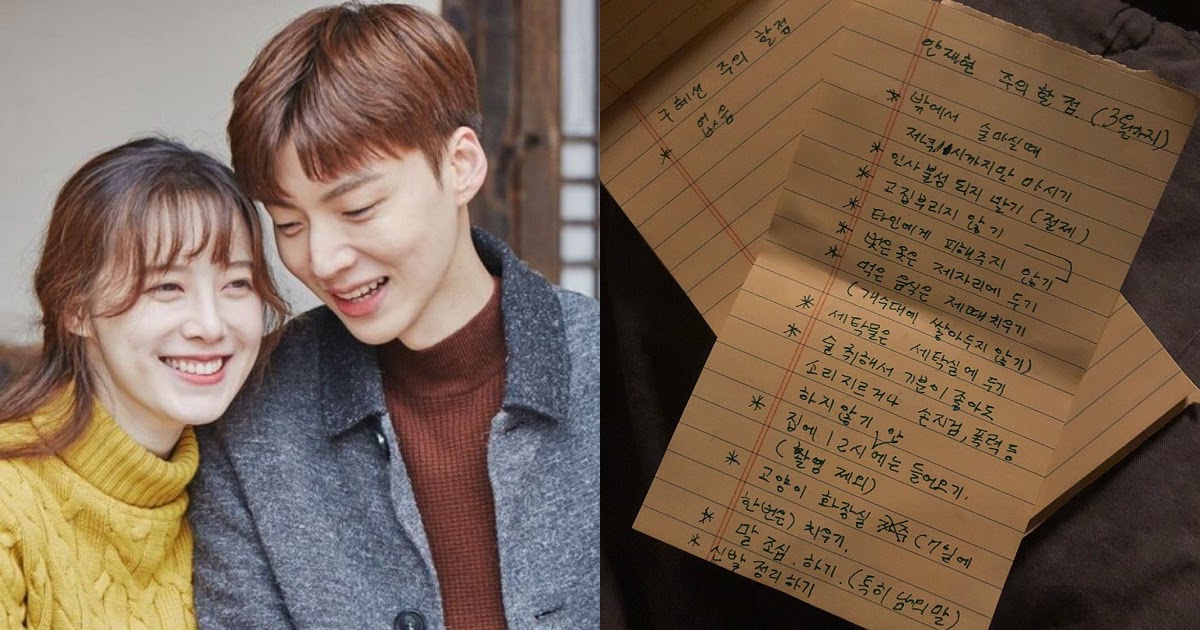 구혜선 주의 할점
* 없음
안재현 주의할점 (3월까지)
* 밖에서 술마실때
저녁 시까지만 마시기
* 인사불성 되지 말기 (절제)
* 고집부리지 않기
* 타인에게 피해주지 않기
* 벗은옷은 제자리에 두기
* 먹은 음식은 제때치우기
(개수대에 쌓아두지 않기)
* 세탁물은 세탁실에 두기
* 술 취해서 기분이 좋아도
소리지르거나 손지검, 폭력 등
하지않기
* 집에 12시 안에는 들어오기.
(촬영 제외)
* 고양이 화장실 (7일에
한번은) 치우기.
* 말 조심. 하기. (특히 남의 말)
* 신발 정리하기